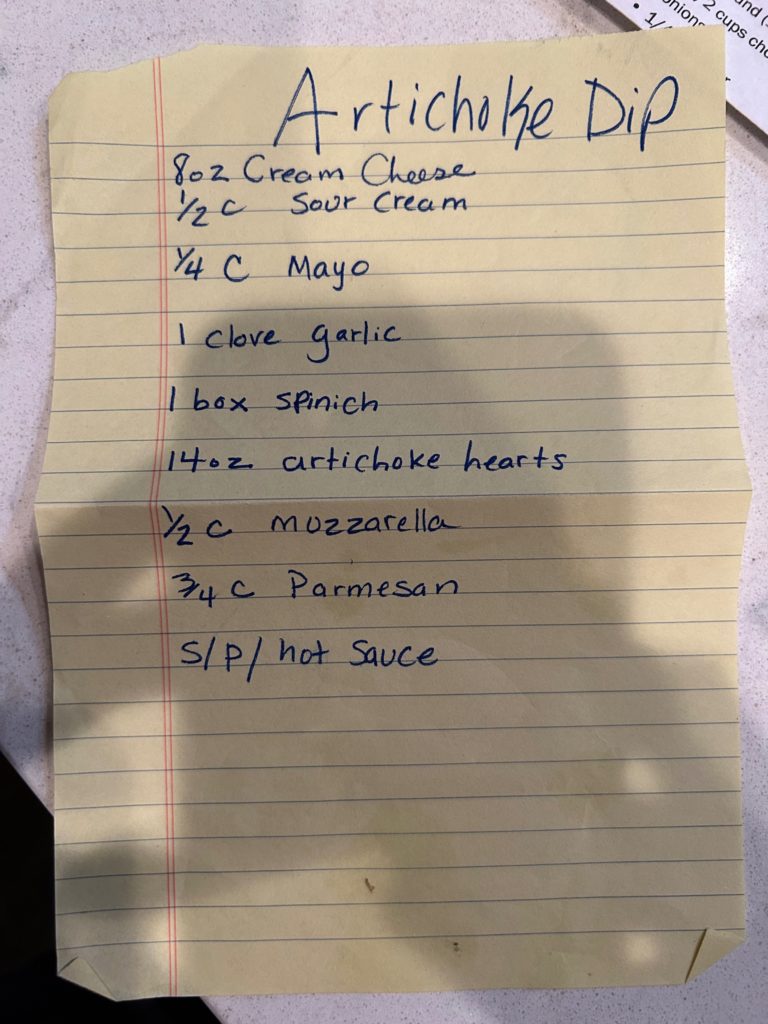 Artichoke Dip
8oz Cream Cheese
1/2 c Sour Cream
1/4 C Mayo
1 clove garlic
1 box spinich
14oz artichoke hearts
1/2 c mozzarella
3/4 c Parmesan
S/P/ hot sauce
2 cups